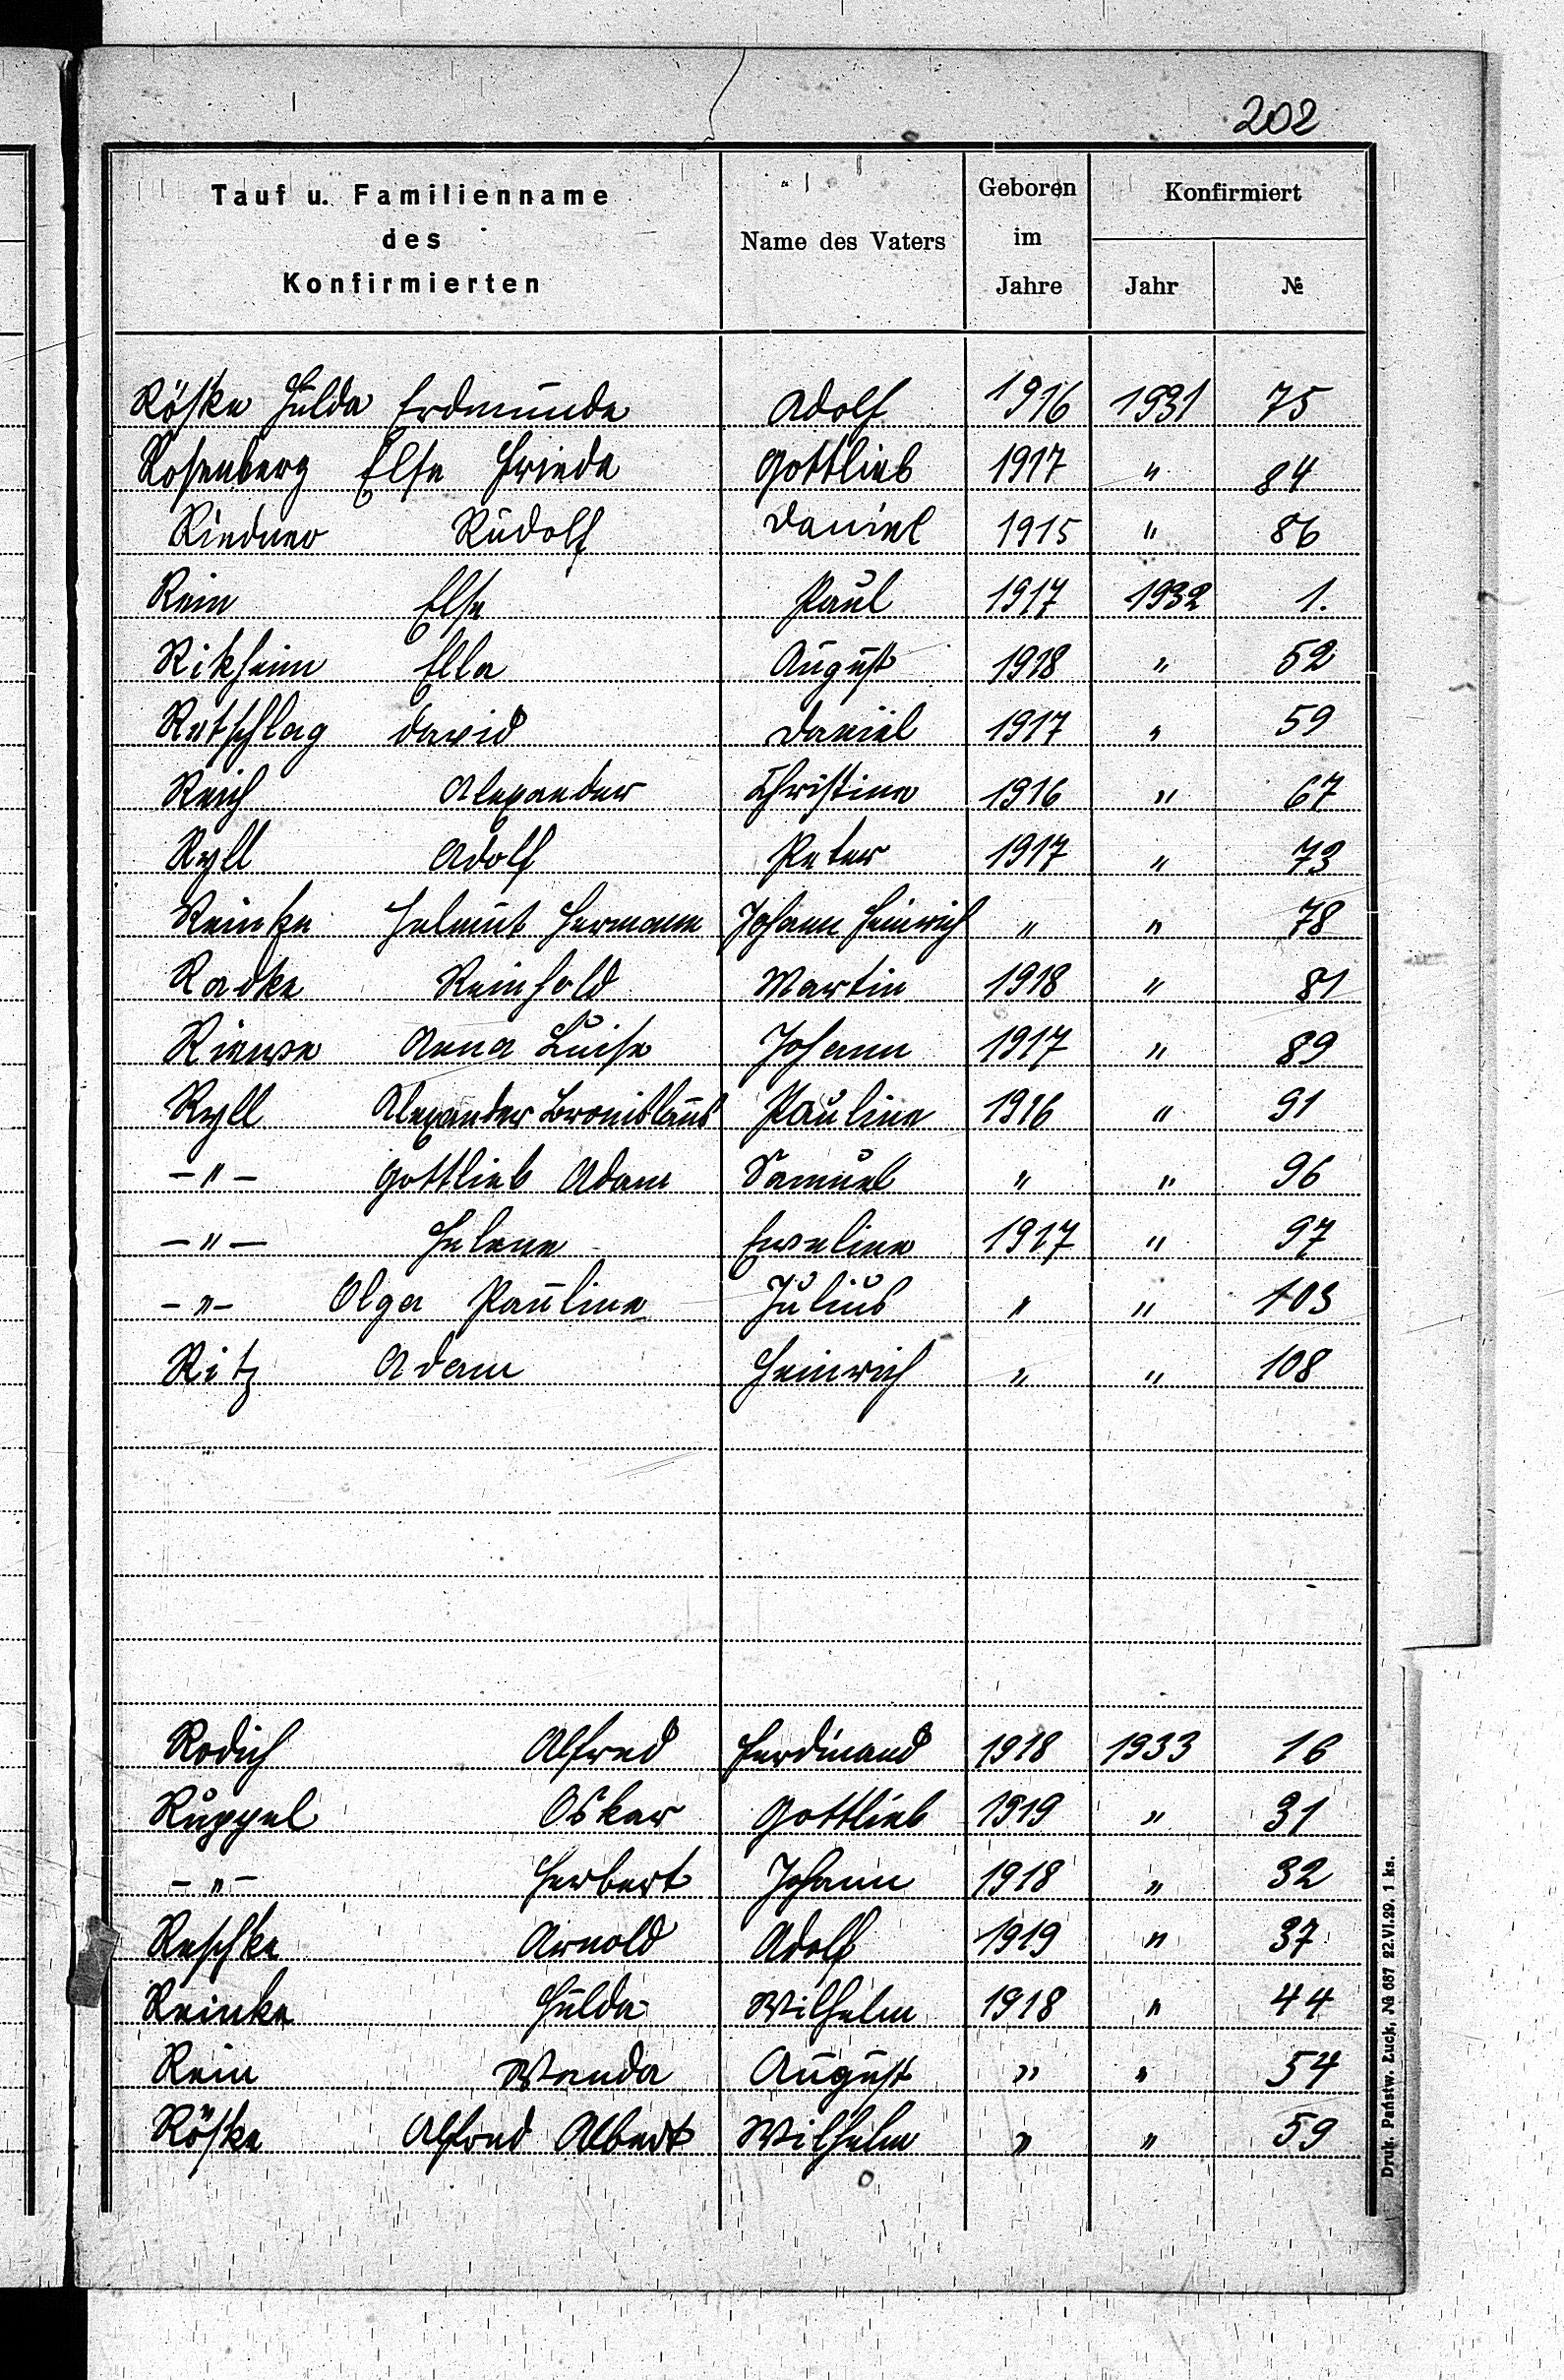 202
Tauf u. Familienname des Konfirmierten | Name des Vaters | Geboren im Jahre | Konfirmiert Jahr | №
Röske Hulda Erdmunde | Adolf | 1916 | 1931 | 75
Rosenberg Else Frieda | Gottlieb | 1917 | " | 84
Riedner Rudolf | Daniel | 1915 | " | 86
Rein Else | Paul | 1917 | 1932 | 1.
Rikheim Ella | August | 1918 | " | 52
Ratschlag David | Daniel | 1917 | " | 59
Reich Alexander | Christine | 1916 | " | 67
Ryll Adolf | Peter | 1917 | " | 73
Reinke Helmut Hermann | Johann Heinrich | " | " | 78
Radke Reinhold | Martin | 1918 | " | 81
Anna Luise | Johann | 1917 | " | 89
Ryll Alexander Bronislaus | Pauline | 1916 | " | 91
-"- Gottlieb Adam | Samuel | " | " | 96
-"- Helene | Eweline | 1917 | " | 97
-"- Olga Pauline | Julius | " | " | 103
Ritz Adam | Heinrich | " | " | 108
Rodich Alfred | Ferdinand | 1918 | 1933 | 16
Ruppel Oskar | Gottlieb | 1919 | " | 31
-"- Herbert | Johann | 1918 | " | 32
Reschke Arnold | Adolf | 1919 | " | 37
Reinke Hulda | Wilhelm | 1918 | " | 44
Rein Wanda | August | " | " | 54
Röske Alfred Albert | Wilhelm | " | " | 59
Druk. Państw. Łuck, № 687 22.VI.29. 1 ks.